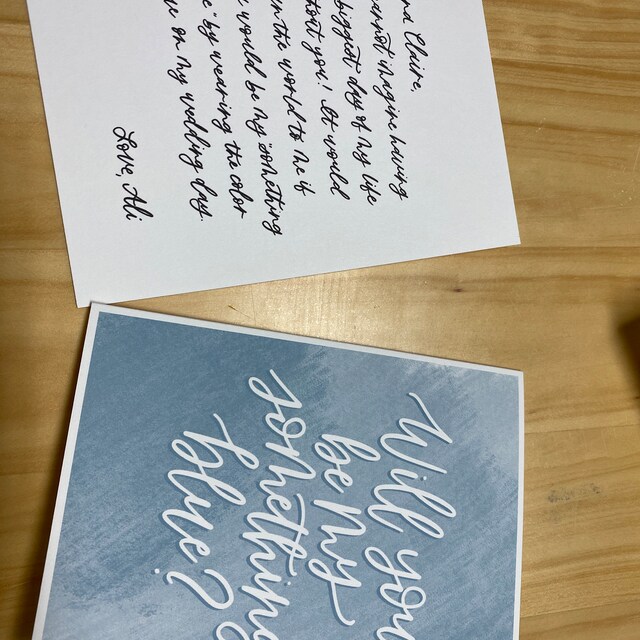 Claire,
cannot imagine having
biggest day of my life
you! It would
in the world to me if
would be my "something
" by wearing the color
on my wedding day.
Love, Ali
Will you
be my
something
blue?